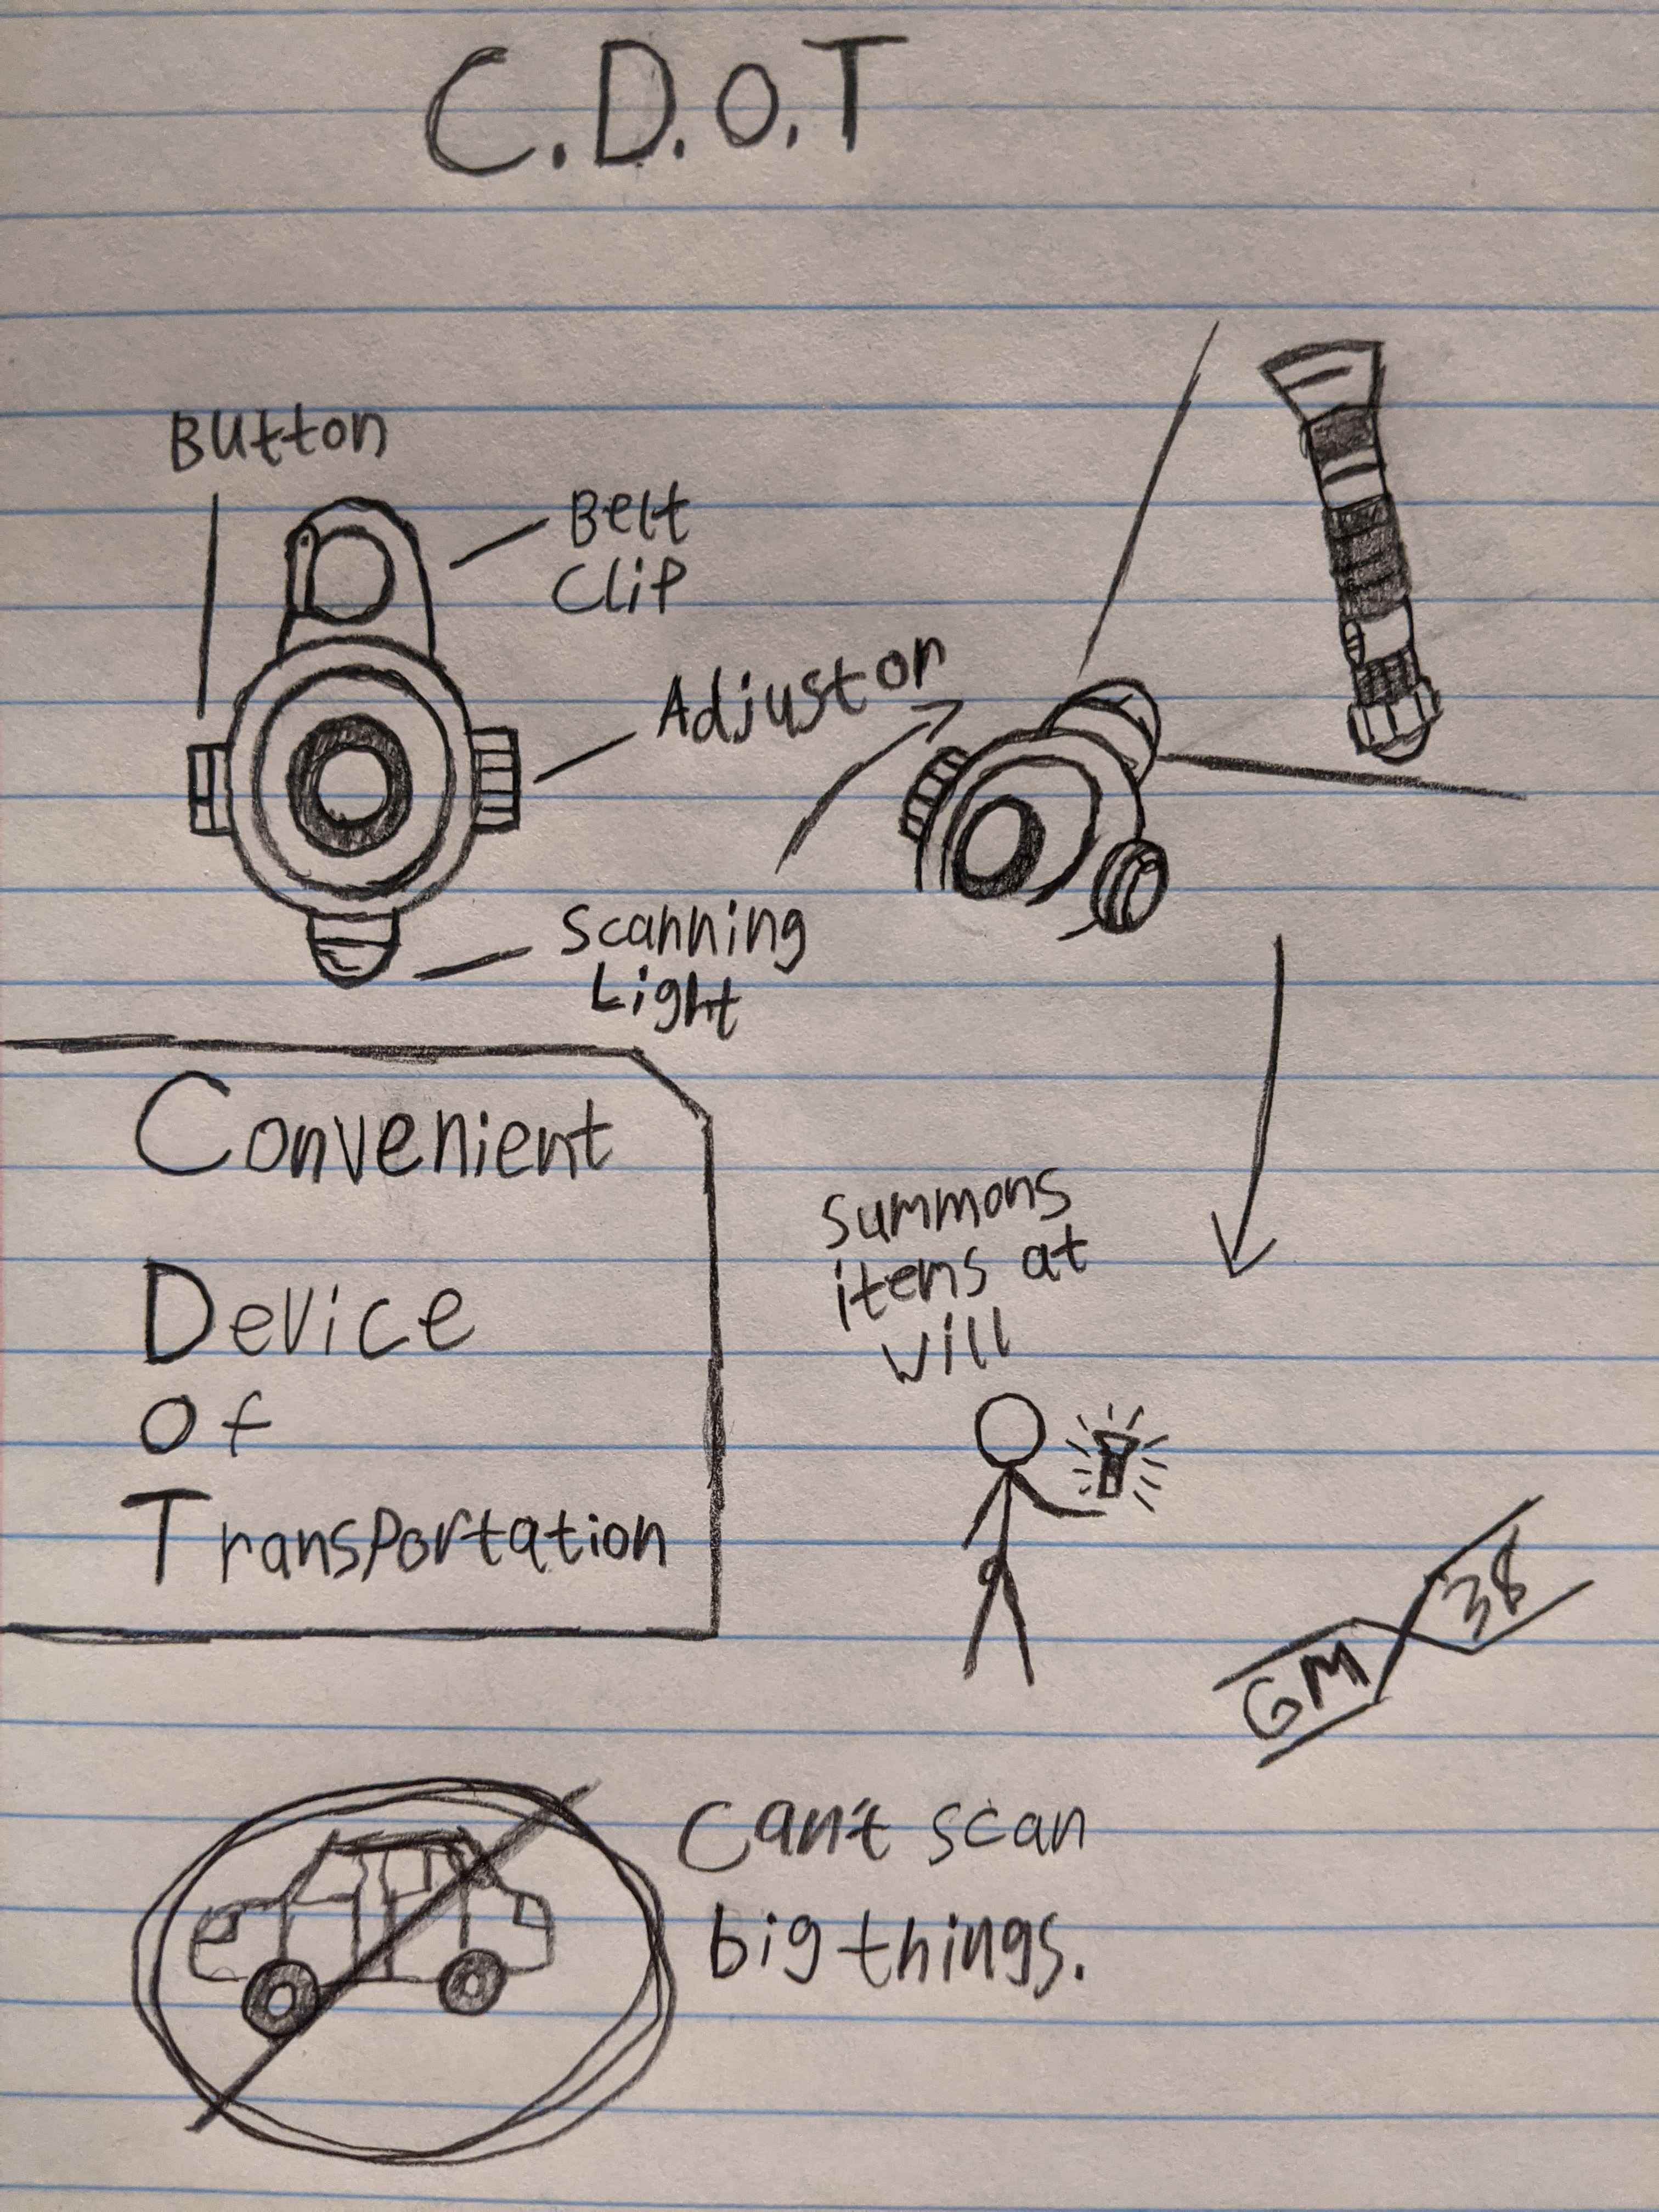 C.D.O.T
Button
Belt
Clip
Adjuston
Scanning
Light
Convenient
Device
Of
Transportation
Summons
items at
will
GM 38
Can't scan
big things.